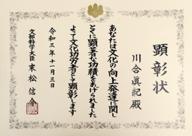 顕彰状
川合眞紀殿
あなたは文化の向上発達に関し
とくに顕著な功績をあげられました
よって文化功労者として顕彰します
令和三年十一月三日
文部科学大臣 末松信介